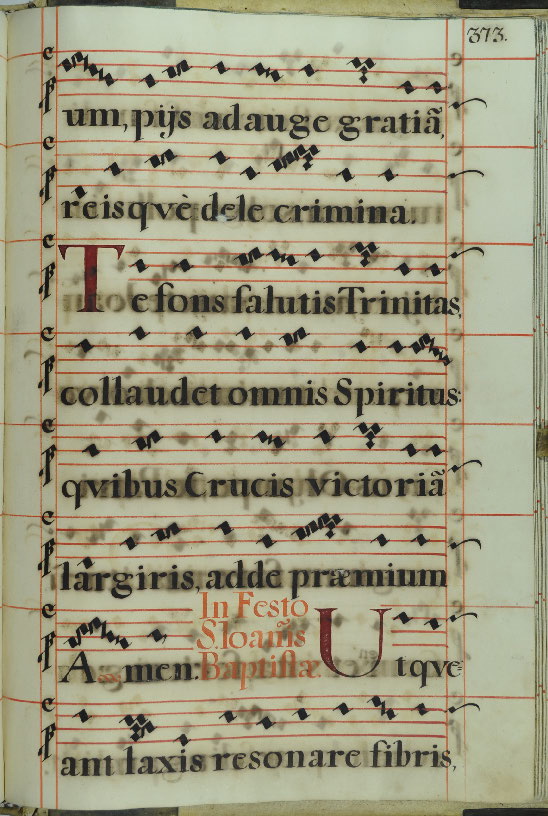 373.
um, pijs adauge gratiã,
reisqvè dele crimina.
Te fons salutis Trinitas,
collaudet omnis Spiritus:
qvibus Crucis victoriã
largiris, adde præmium
Amen:
In Festo
S. Ioañis
Baptistæ.
Ut qve-
ant laxis resonare fibris,